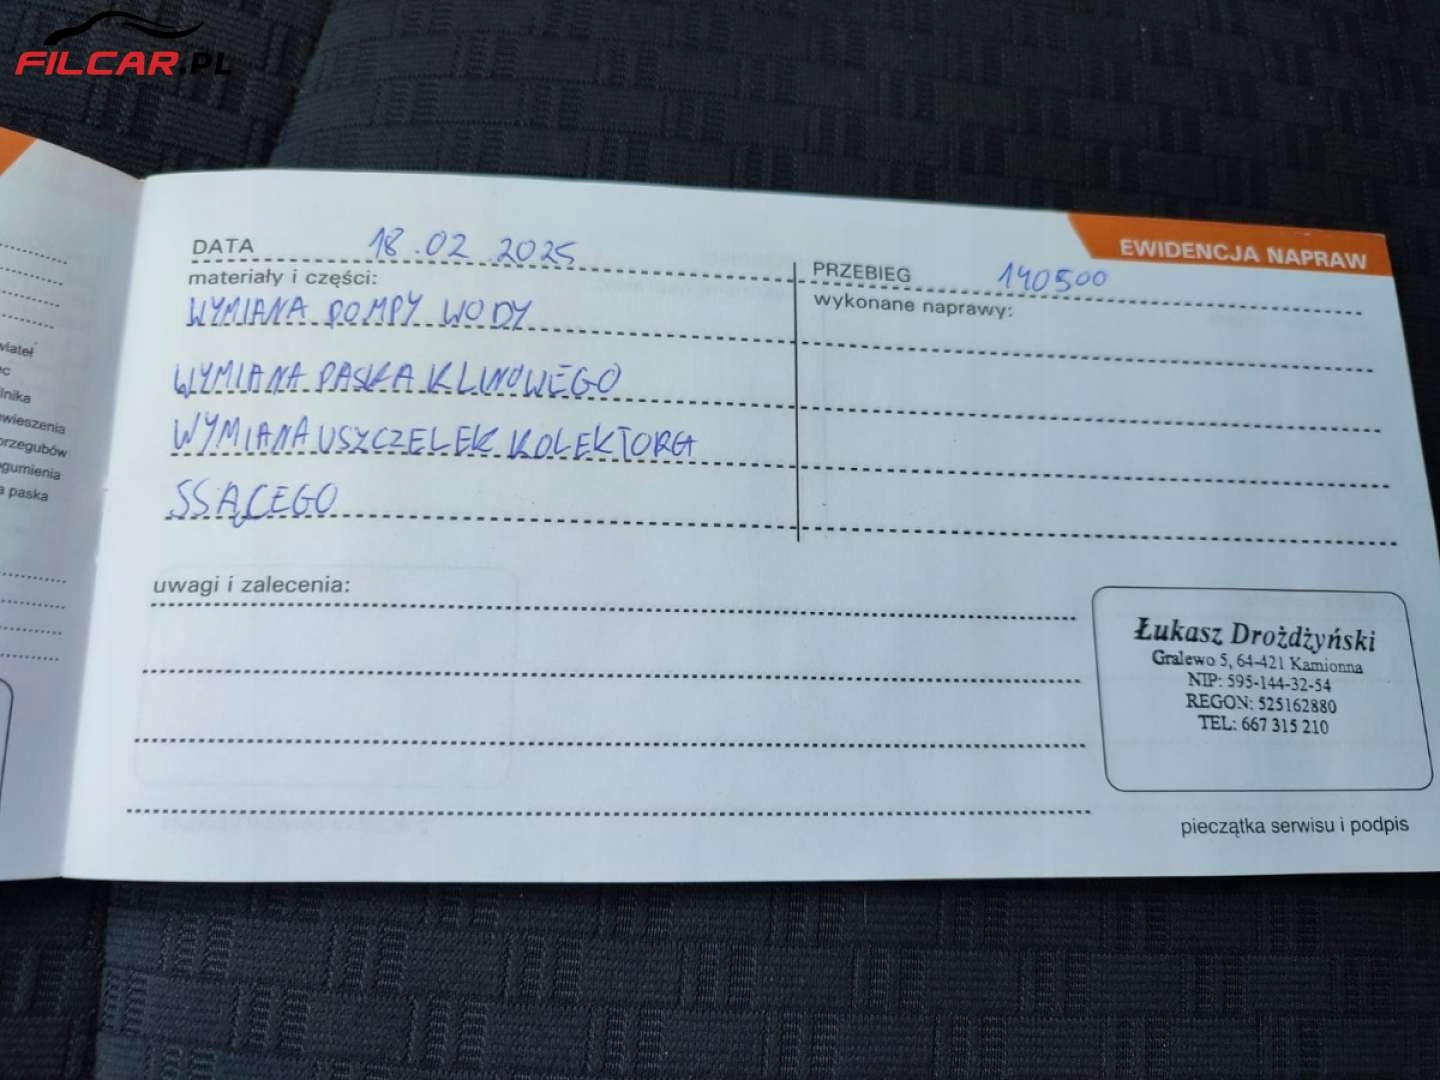 FILCAR.PL
EWIDENCJA NAPRAW
DATA 18.02.2025
PRZEBIEG 140500
materiały i części:
wykonane naprawy:
WYMIANA POMPY WODY
WYMIANA PASKA KLINOWEGO
WYMIANA USZCZELEK KOLEKTORA
SSĄCEGO
uwagi i zalecenia:
Łukasz Drożdżyński
Gralewo 5, 64-421 Kamionna
NIP: 595-144-32-54
REGON: 525162880
TEL: 667 315 210
pieczątka serwisu i podpis
wieszenia
przegubów
gumienia
a paska